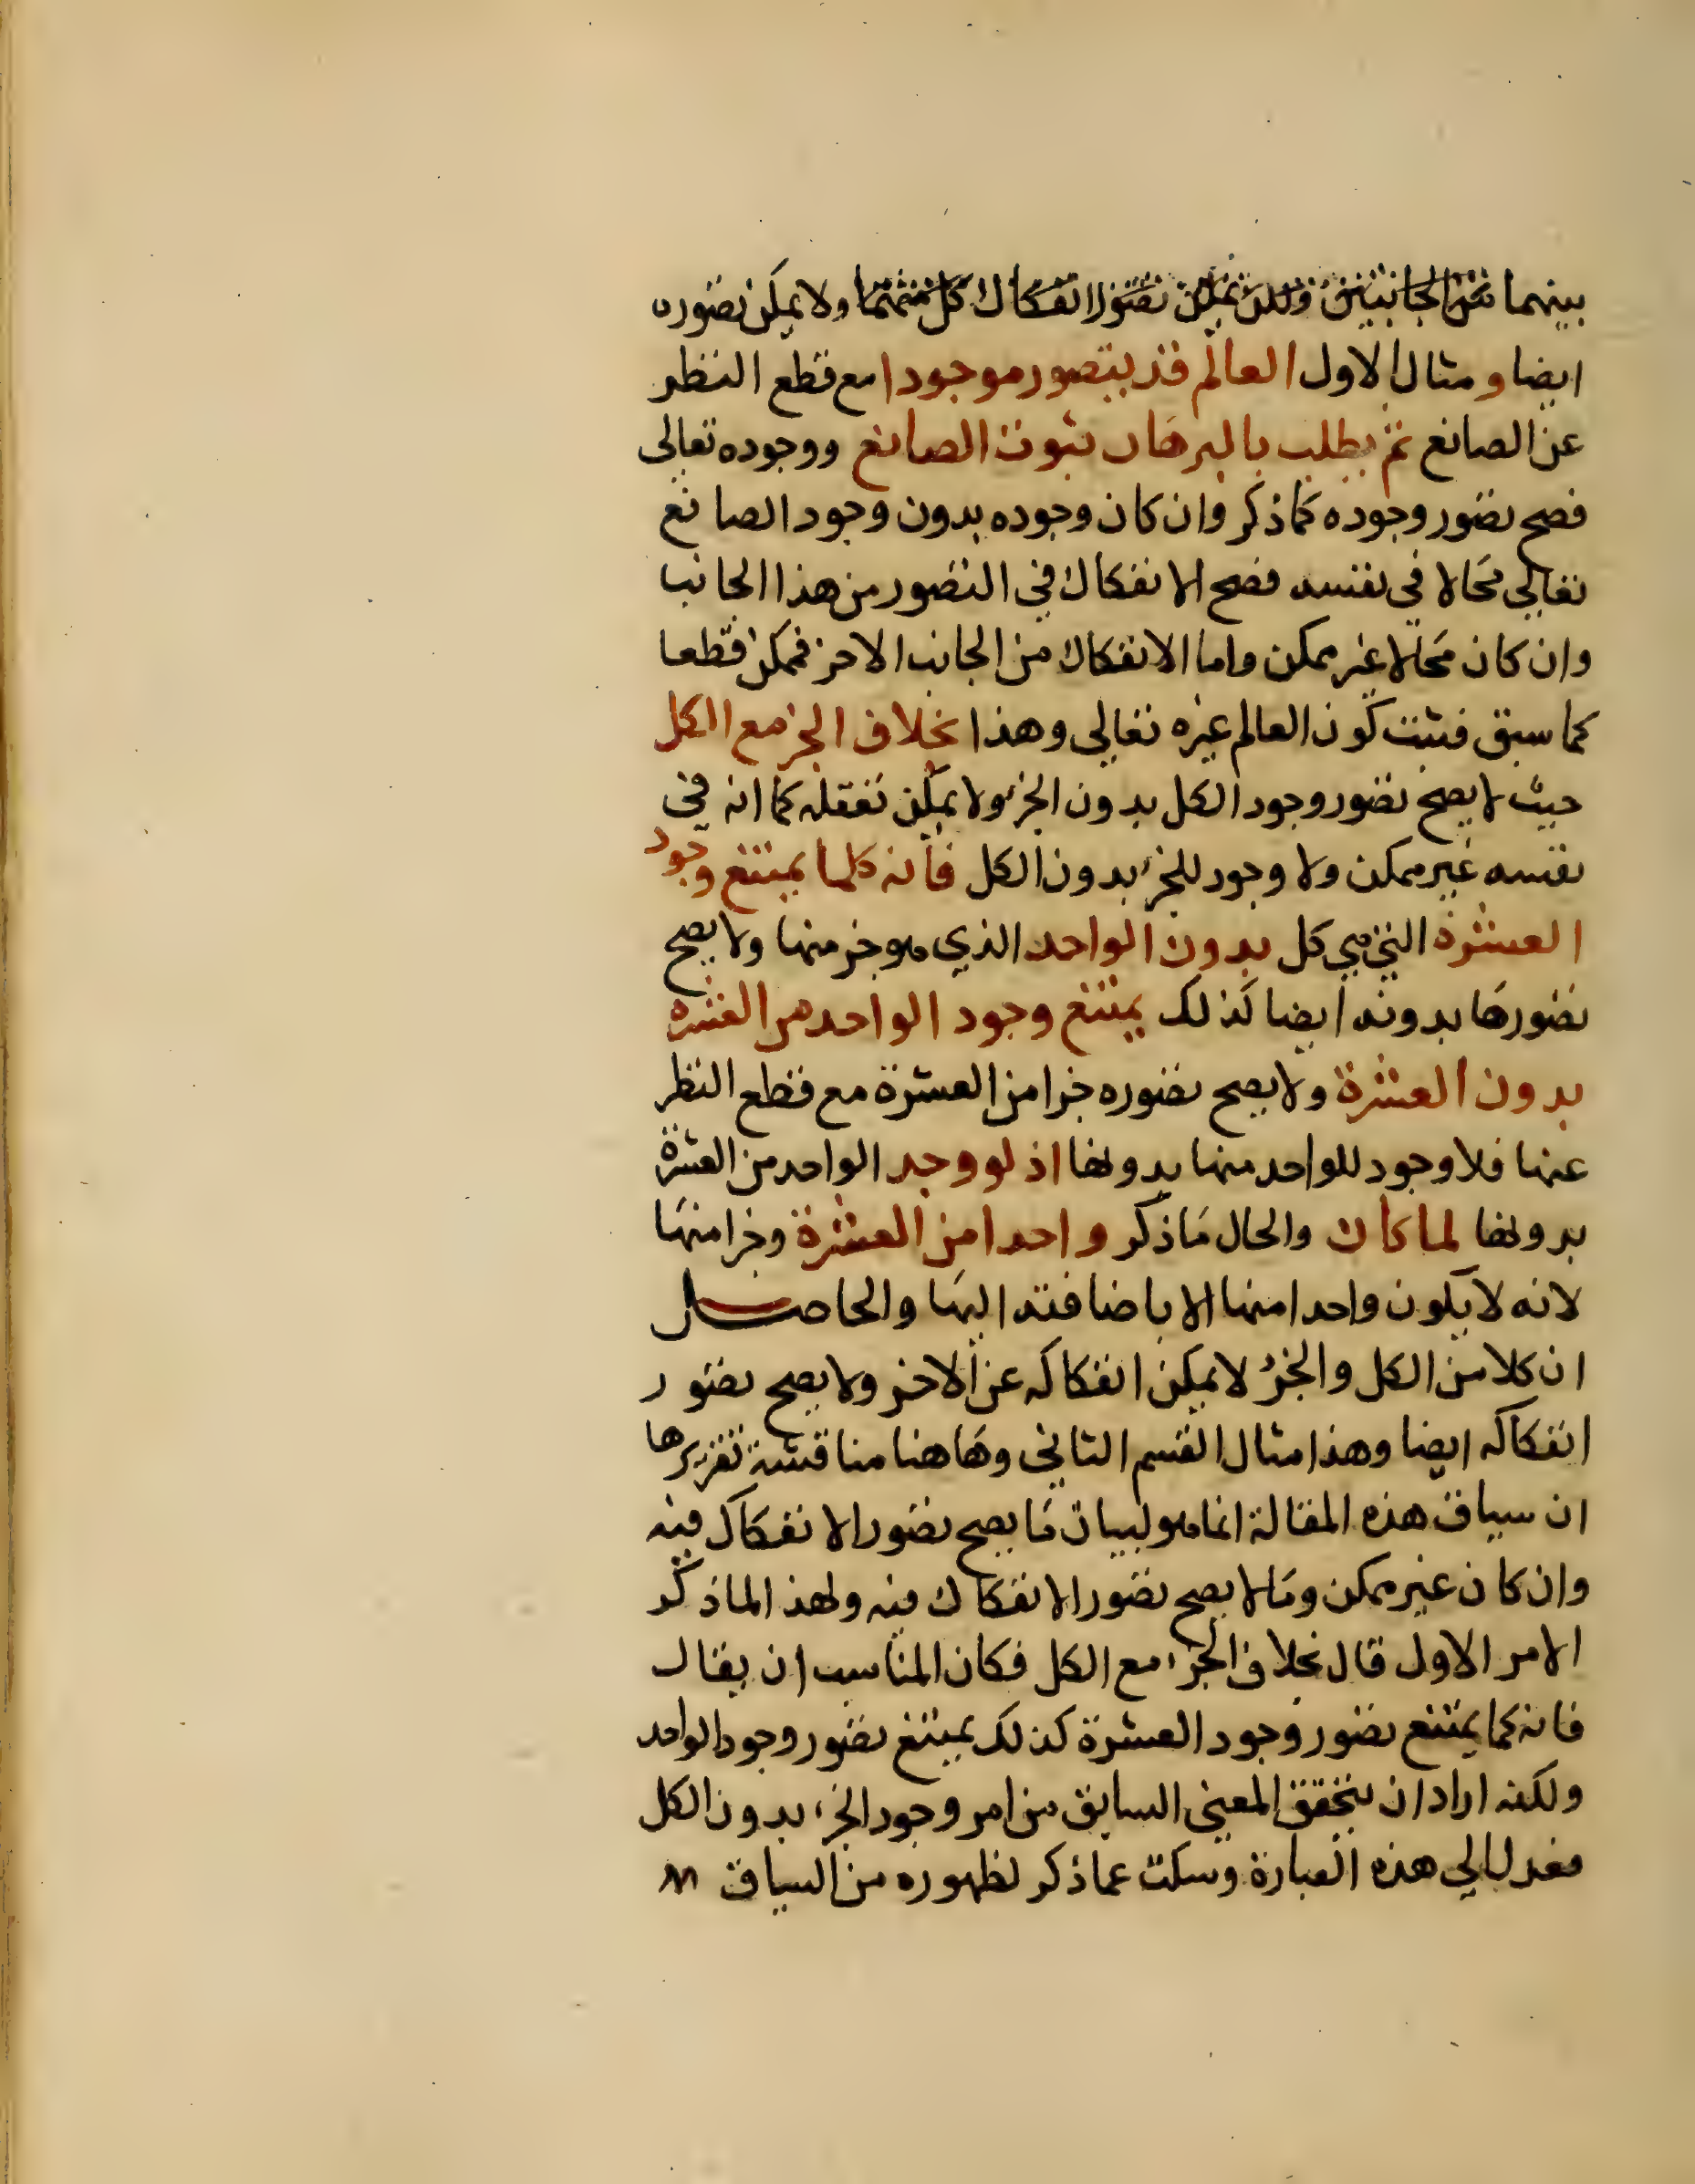 بينهما من الجانبين ولكن يمكن تصور انفكاك كل منهما ولا يمكن تصوره
ايضا ومثال الاول العالم قد يتصور موجودا مع قطع النظر
عن الصانع ثم يطلب بالبرهان ثبوت الصانع ووجوده تعالى
فصح تصور وجوده كما ذكر وان كان وجوده بدون وجود الصانع
تعالى محالا في نفسه فصح الانفكاك في التصور من هذا الجانب
وان كان محالا غير ممكن واما الانفكاك من الجانب الاخر فممكن قطعا
كما سبق فثبت كون العالم غيره تعالى وهذا بخلاف الجزء مع الكل
حيث لا يصح تصور وجود الكل بدون الجزء ولا يمكن تعقله كما انه في
نفسه غير ممكن ولا وجود للجزء بدون الكل فانه كلما يمتنع وجود
العشرة التي هي كل بدون الواحد الذي هو جزء منها ولا يصح
تصورها بدونه ايضا كذلك يمتنع وجود الواحد من العشره
بدون العشرة ولا يصح تصوره جزا من العشرة مع قطع النظر
عنها فلا وجود للواحد منها بدونها اذ لو وجد الواحد من العشرة
بدونها لما كان والحال ما ذكر واحدا من العشرة وجزا منها
لانه لا يكون واحدا منها الا باضافته اليها والحاصل
ان كلا من الكل والجزء لا يمكن انفكاكه عن الاخر ولا يصح تصور
انفكاكه ايضا وهذا مثال القسم الثاني وهاهنا مناقشة تقريرها
ان سياق هذه المقالة انما هو لبيان ما يصح تصور الانفكاك فيه
وان كان غير ممكن وما لا يصح تصور الانفكاك فيه ولهذا لما ذكر
الامر الاول قال بخلاف الجزء مع الكل فكان المناسب ان يقال
فانه كما يمتنع تصور وجود العشرة كذلك يمتنع تصور وجود الواحد
ولكنه اراد ان يتحقق المعنى السابق من امر وجود الجزء بدون الكل
فعدل الي هذه العبارة وسكت عما ذكر لظهوره من السياق